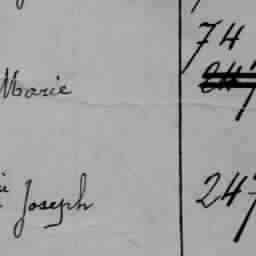 74
Marie 247
Joseph 247